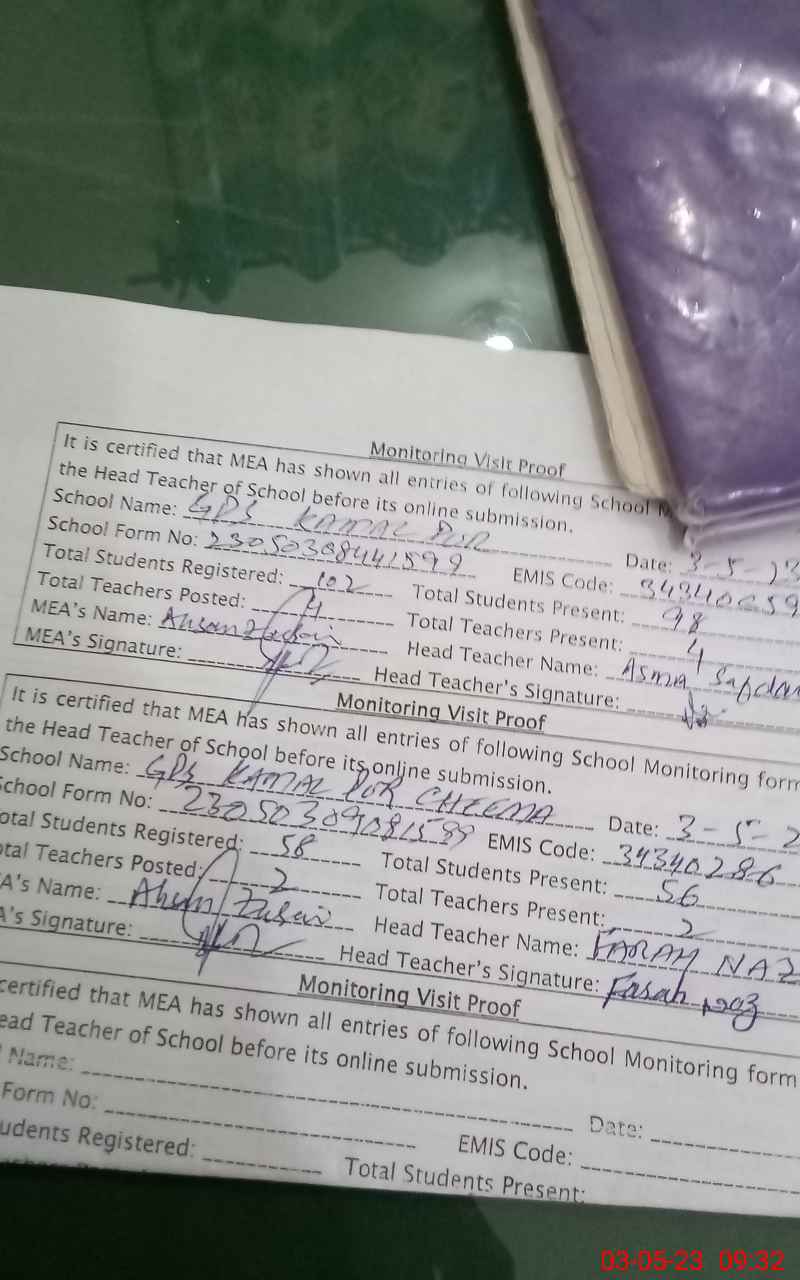 Monitoring Visit Proof
It is certified that MEA has shown all entries of following School M
the Head Teacher of School before its online submission.
School Name: GPS KAMAL PUR Date: 3-5-23
School Form No: 23050308441599 EMIS Code: 34340259
Total Students Registered: 102 Total Students Present: 98
Total Teachers Posted: 4 Total Teachers Present: 4
MEA's Name: Head Teacher Name: Asma Safdar
MEA's Signature: Head Teacher's Signature:
Monitoring Visit Proof
It is certified that MEA has shown all entries of following School Monitoring form
the Head Teacher of School before its online submission.
School Name: GPS KAMAL PUR CHEEMA Date: 3-5-2
School Form No: 23050309081599 EMIS Code: 34340286
otal Students Registered: 58 Total Students Present: 56
otal Teachers Posted: 2 Total Teachers Present: 2
A's Name: Head Teacher Name: FARAH NAZ
A's Signature: Head Teacher's Signature: Farah naz
Monitoring Visit Proof
certified that MEA has shown all entries of following School Monitoring form
ead Teacher of School before its online submission.
Name: Date:
Form No: EMIS Code:
udents Registered: Total Students Present:
03-05-23 09:32